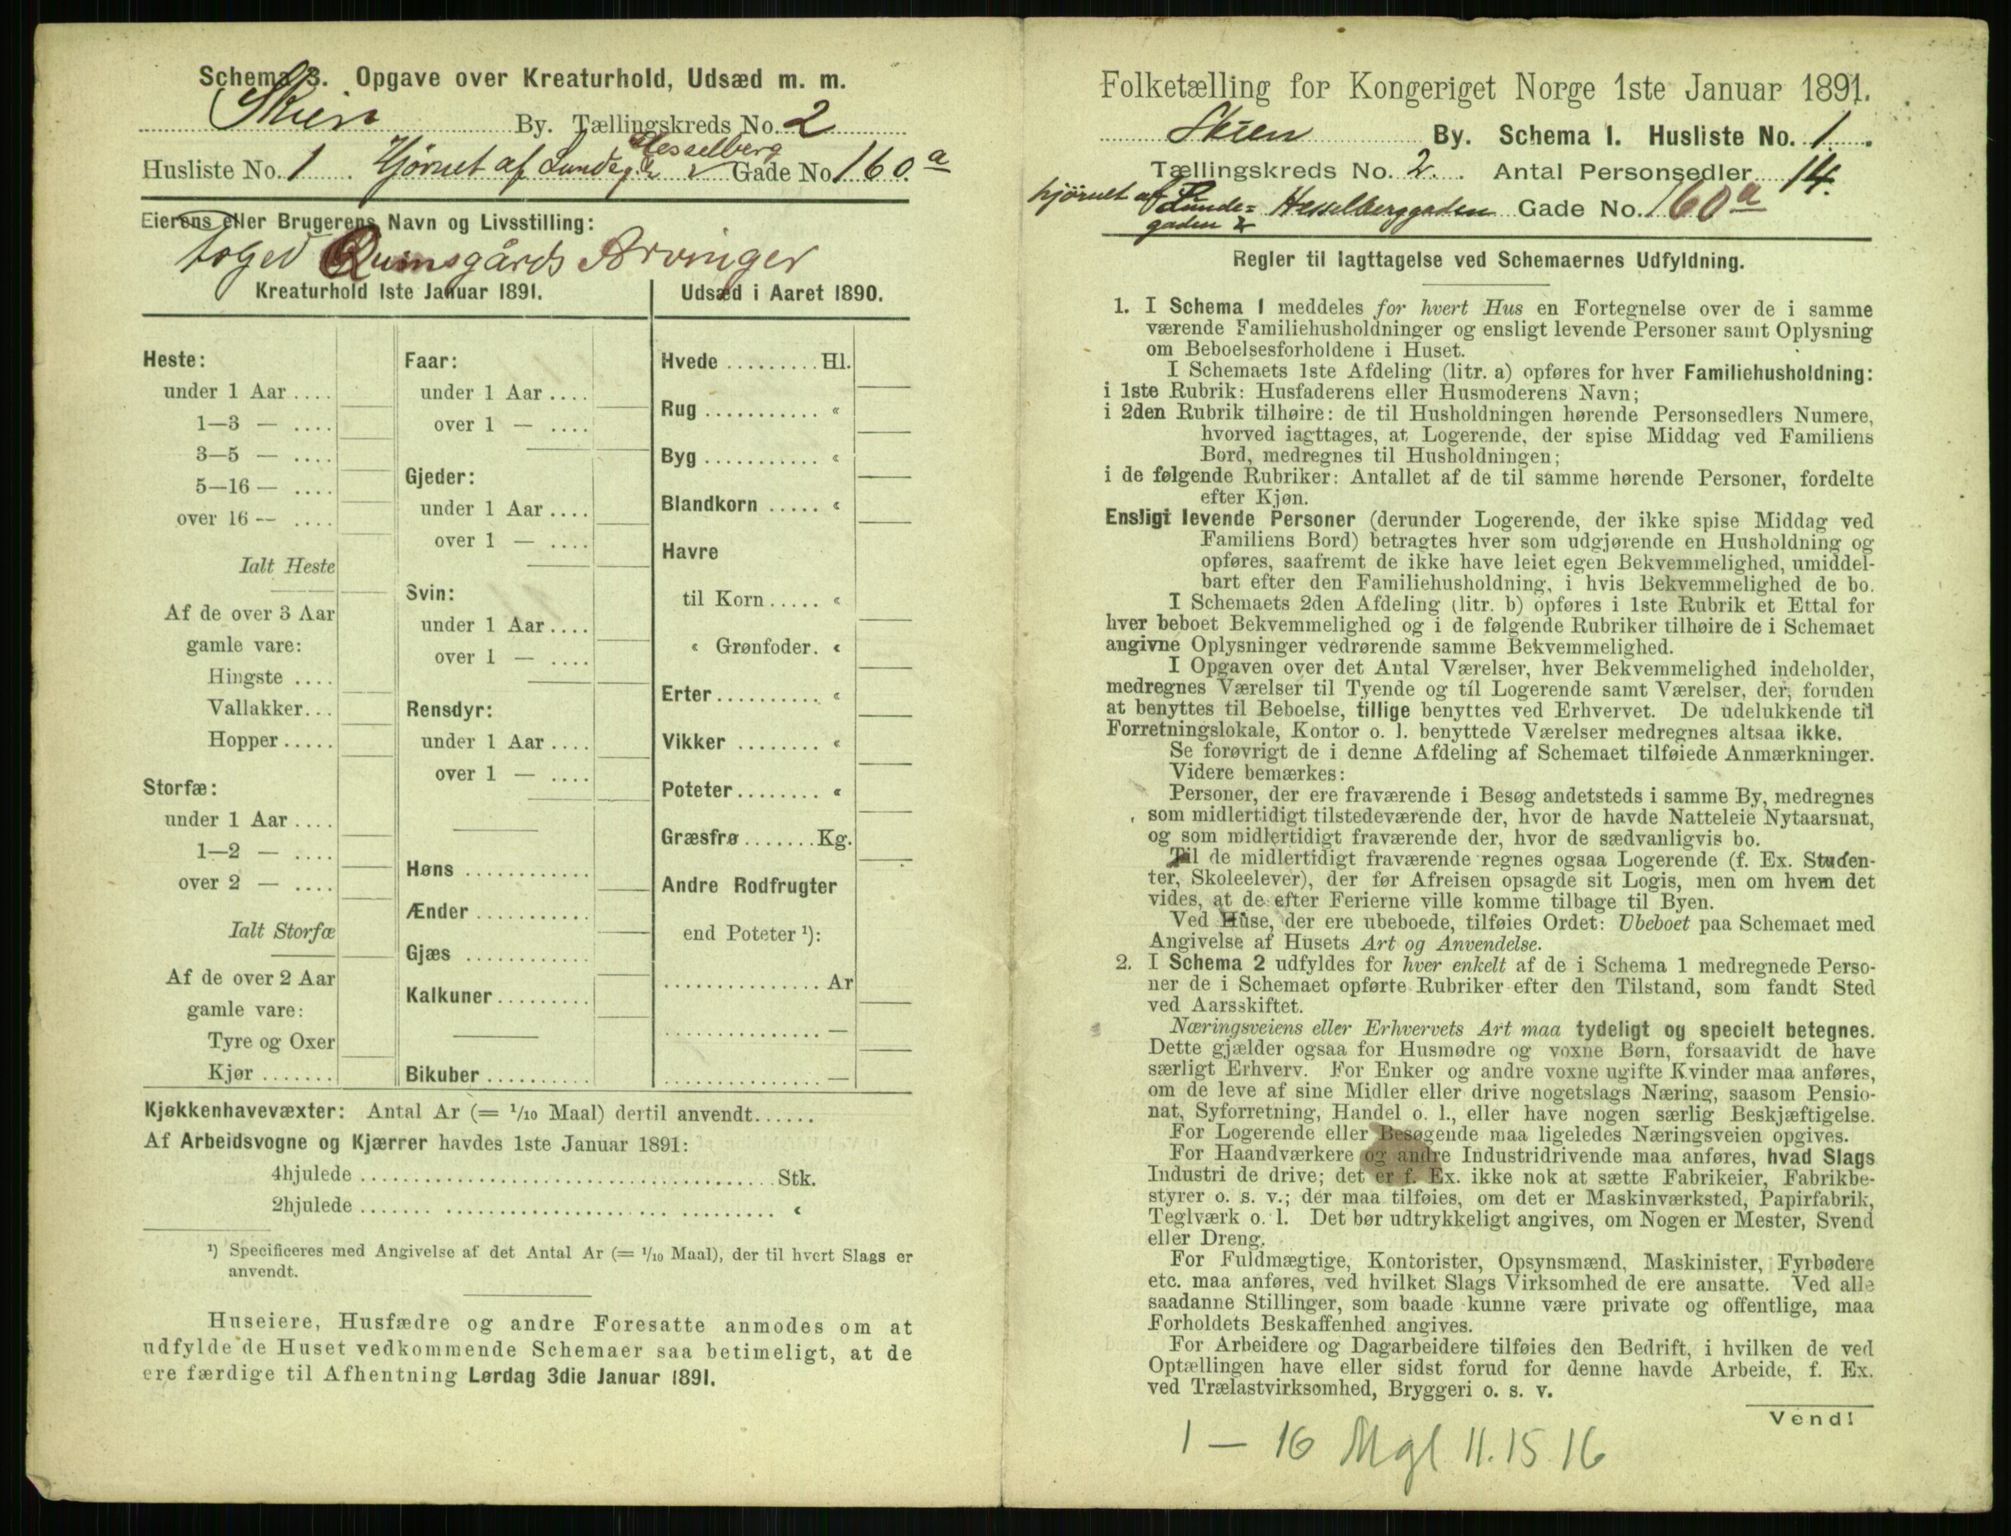 Schema 3. Opgave over Kreaturhold, Udsæd m. m.
Skien By. Tællingskreds No. 2
Husliste No. 1 Hjørnet af Lundeg. & Hesselberg Gade No. 160a
Eierens eller Brugerens Navn og Livsstilling:
foged Rumsgårds Arvinger
Kreaturhold 1ste Januar 1891.
Heste:
under 1 Aar ....
1—3 — ....
3—5 — ....
5—16 — ....
over 16 — ....
Ialt Heste
Af de over 3 Aar
gamle vare:
Hingste ....
Vallakker...
Hopper .....
Storfæ:
under 1 Aar ....
1—2 — ....
over 2 — ....
Ialt Storfæ
Af de over 2 Aar
gamle vare:
Tyre og Oxer
Kjør .......
Faar:
under 1 Aar ....
over 1 — ....
Gjeder:
under 1 Aar ....
over 1 — ....
Svin:
under 1 Aar ....
over 1 — ....
Rensdyr:
under 1 Aar ....
over 1 — ....
Høns ............
Ænder ...........
Gjæs ............
Kalkuner .........
Bikuber ..........
Udsæd i Aaret 1890.
Hvede ......... Hl.
Rug ........... «
Byg ........... «
Blandkorn ..... «
Havre
til Korn ..... «
« Grønfoder. «
Erter .......... «
Vikker ........ «
Poteter ........ «
Græsfrø ....... Kg.
Andre Rodfrugter
end Poteter ¹):
............... Ar
............... —
............... —
Kjøkkenhavevæxter: Antal Ar (= 1/10 Maal) dertil anvendt......
Af Arbeidsvogne og Kjærrer havdes 1ste Januar 1891:
4hjulede ........................................ Stk.
2hjulede ........................................ «
¹) Specificeres med Angivelse af det Antal Ar (= 1/10 Maal), der til hvert Slags er
anvendt.
Huseiere, Husfædre og andre Foresatte anmodes om at
udfylde de Huset vedkommende Schemaer saa betimeligt, at de
ere færdige til Afhentning Lørdag 3die Januar 1891.
Folketælling for Kongeriget Norge 1ste Januar 1891.
Skien By. Schema 1. Husliste No. 1
Tællingskreds No. 2. Antal Personsedler 14.
hjørnet af Lunde-
gaden & Hesselberggaden Gade No. 160a
Regler til Iagttagelse ved Schemaernes Udfyldning.
1. I Schema 1 meddeles for hvert Hus en Fortegnelse over de i samme
værende Familiehusholdninger og ensligt levende Personer samt Oplysning
om Beboelsesforholdene i Huset.
I Schemaets 1ste Afdeling (litr. a) opføres for hver Familiehusholdning:
i 1ste Rubrik: Husfaderens eller Husmoderens Navn;
i 2den Rubrik tilhøire: de til Husholdningen hørende Personsedlers Numere,
hvorved iagttages, at Logerende, der spise Middag ved Familiens
Bord, medregnes til Husholdningen;
i de følgende Rubriker: Antallet af de til samme hørende Personer, fordelte
efter Kjøn.
Ensligt levende Personer (derunder Logerende, der ikke spise Middag ved
Familiens Bord) betragtes hver som udgjørende en Husholdning og
opføres, saafremt de ikke have leiet egen Bekvemmelighed, umiddel-
bart efter den Familiehusholdning, i hvis Bekvemmelighed de bo.
I Schemaets 2den Afdeling (litr. b) opføres i 1ste Rubrik et Ettal for
hver beboet Bekvemmelighed og i de følgende Rubriker tilhøire de i Schemaet
angivne Oplysninger vedrørende samme Bekvemmelighed.
I Opgaven over det Antal Værelser, hver Bekvemmelighed indeholder,
medregnes Værelser til Tyende og til Logerende samt Værelser, der, foruden
at benyttes til Beboelse, tillige benyttes ved Erhvervet. De udelukkende til
Forretningslokale, Kontor o. l. benyttede Værelser medregnes altsaa ikke.
Se forøvrigt de i denne Afdeling af Schemaet tilføiede Anmærkninger.
Videre bemærkes:
Personer, der ere fraværende i Besøg andetsteds i samme By, medregnes
som midlertidigt tilstedeværende der, hvor de havde Natteleie Nytaarsnat,
og som midlertidigt fraværende der, hvor de sædvanligvis bo.
Til de midlertidigt fraværende regnes ogsaa Logerende (f. Ex. Studen-
ter, Skoleelever), der før Afreisen opsagde sit Logis, men om hvem det
vides, at de efter Ferierne ville komme tilbage til Byen.
Ved Huse, der ere ubeboede, tilføies Ordet: Ubeboet paa Schemaet med
Angivelse af Husets Art og Anvendelse.
2. I Schema 2 udfyldes for hver enkelt af de i Schema 1 medregnede Perso-
ner de i Schemaet opførte Rubriker efter den Tilstand, som fandt Sted
ved Aarsskiftet.
Næringsveiens eller Erhvervets Art maa tydeligt og specielt betegnes.
Dette gjælder ogsaa for Husmødre og voxne Børn, forsaavidt de have
særligt Erhverv. For Enker og andre voxne ugifte Kvinder maa anføres,
om de leve af sine Midler eller drive nogetslags Næring, saasom Pensio-
nat, Syforretning, Handel o. l., eller have nogen særlig Beskjæftigelse.
For Logerende eller Besøgende maa ligeledes Næringsveien opgives.
For Haandværkere og andre Industridrivende maa anføres, hvad Slags
Industri de drive; det er f. Ex. ikke nok at sætte Fabrikeier, Fabrikbe-
styrer o. s. v.; der maa tilføies, om det er Maskinværksted, Papirfabrik,
Teglværk o. l. Det bør udtrykkeligt angives, om Nogen er Mester, Svend
eller Dreng.
For Fuldmægtige, Kontorister, Opsynsmænd, Maskinister, Fyrbødere
etc. maa anføres, ved hvilket Slags Virksomhed de ere ansatte. Ved alle
saadanne Stillinger, som baade kunne være private og offentlige, maa
Forholdets Beskaffenhed angives.
For Arbeidere og Dagarbeidere tilføies den Bedrift, i hvilken de ved
Optællingen have eller sidst forud for denne havde Arbeide, f. Ex.
ved Trælastvirksomhed, Bryggeri o. s. v.
Vend!
1 — 16 Mgl 11. 15 16